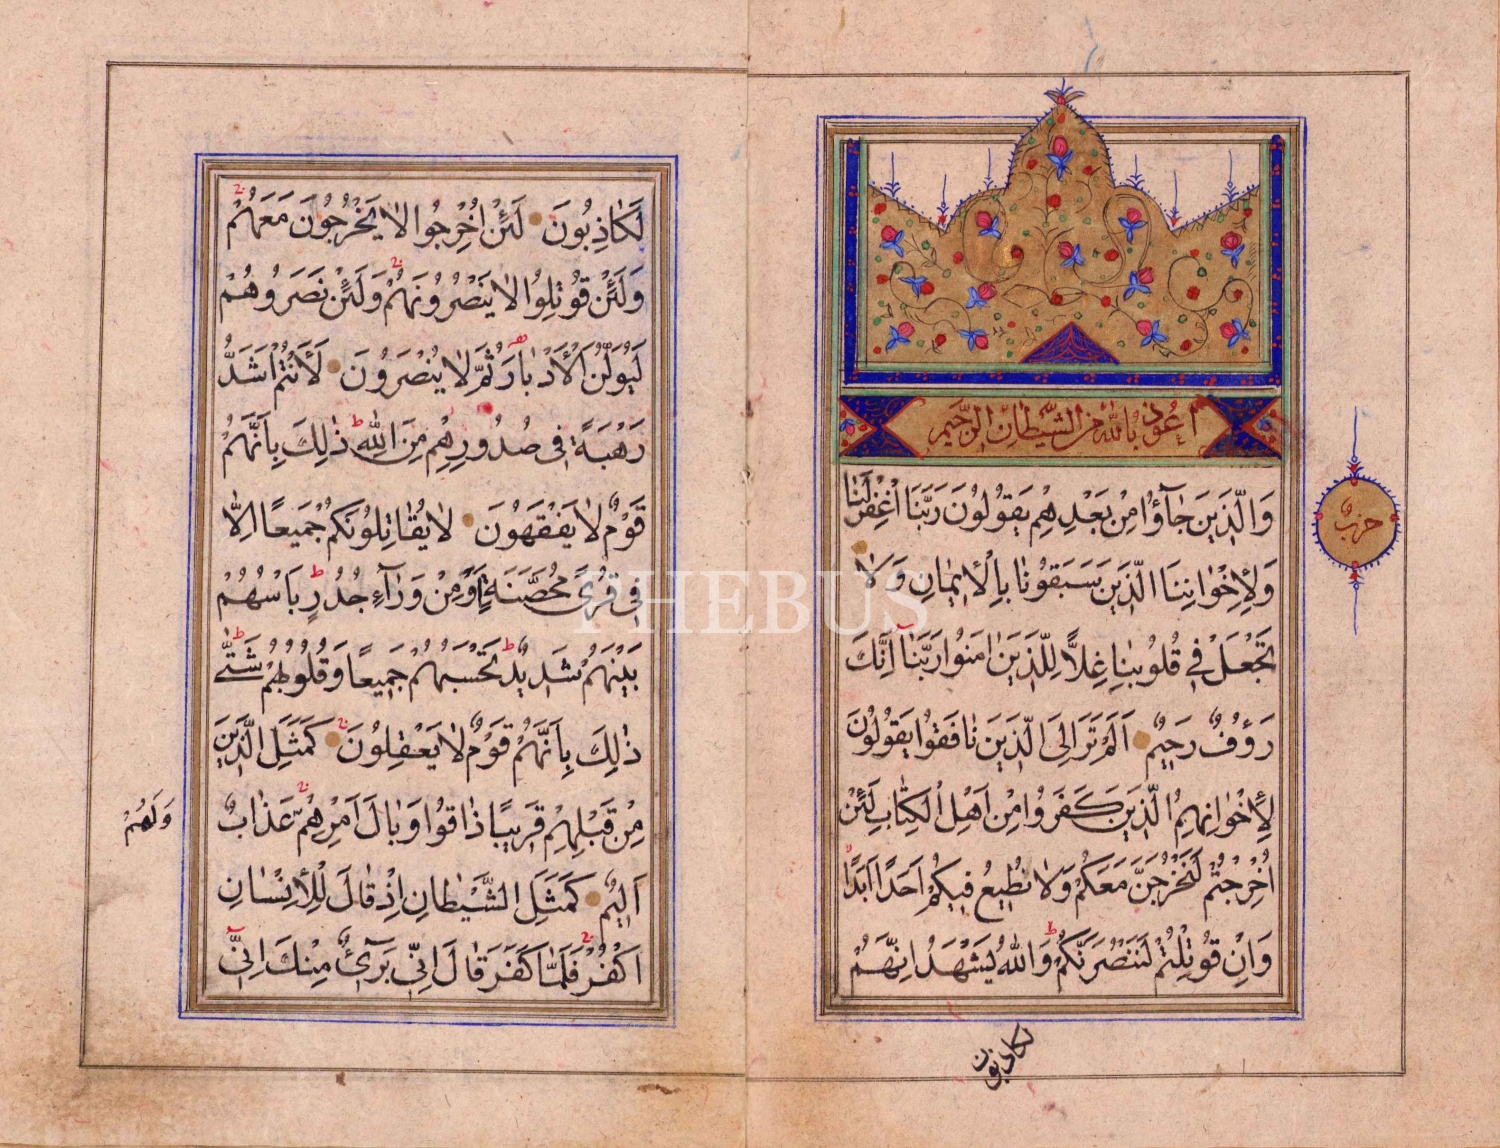 أعوذ بالله من الشيطان الرجيم
وَالَّذِينَ جَآؤُا مِنْ بَعْدِهِمْ يَقُولُونَ رَبَّنَا اغْفِرْ لَنَا
وَلِإِخْوَانِنَا الَّذِينَ سَبَقُونَا بِالْإِيمَانِ وَلَا
تَجْعَلْ فِي قُلُوبِنَا غِلًّا لِلَّذِينَ اٰمَنُوا رَبَّنَا اِنَّكَ
رَؤُفٌ رَحِيمٌ اَلَمْ تَرَ اِلَى الَّذِينَ نَافَقُوا يَقُولُونَ
لِأِخْوَانِهِمُ الَّذِينَ كَفَرُوا مِنْ اَهْلِ الْكِتَابِ لَئِنْ
اُخْرِجْتُمْ لَنَخْرُجَنَّ مَعَكُمْ وَلَا نُطِيعُ فِيكُمْ اَحَدًا اَبَدًا
وَاِنْ قُوتِلْتُمْ لَنَنْصُرَنَّكُمْ وَاللّٰهُ يَشْهَدُ اِنَّهُمْ
حزب
لكاذبون
لَكَاذِبُونَ لَئِنْ اُخْرِجُوا لَا يَخْرُجُونَ مَعَهُمْ
وَلَئِنْ قُوتِلُوا لَا يَنْصُرُونَهُمْ وَلَئِنْ نَصَرُوهُمْ
لَيُوَلُّنَّ الْأَدْبَارَ ثُمَّ لَا يُنْصَرُونَ لَأَنْتُمْ اَشَدُّ
رَهْبَةً فِي صُدُورِهِمْ مِنَ اللّٰهِ ذٰلِكَ بِاَنَّهُمْ
قَوْمٌ لَا يَفْقَهُونَ لَا يُقَاتِلُونَكُمْ جَمِيعًا اِلَّا
فِي قُرًى مُحَصَّنَةٍ اَوْ مِنْ وَرَآءِ جُدُرٍ بَاْسُهُمْ
بَيْنَهُمْ شَدِيدٌ تَحْسَبُهُمْ جَمِيعًا وَقُلُوبُهُمْ شَتّٰى
ذٰلِكَ بِاَنَّهُمْ قَوْمٌ لَا يَعْقِلُونَ كَمَثَلِ الَّذِينَ
مِنْ قَبْلِهِمْ قَرِيبًا ذَاقُوا وَبَالَ اَمْرِهِمْ عَذَابٌ
اَلِيمٌ كَمَثَلِ الشَّيْطَانِ اِذْ قَالَ لِلْأِنْسَانِ
اكْفُرْ فَلَمَّا كَفَرَ قَالَ اِنِّي بَرِيٓءٌ مِنْكَ اِنِّٓي
وَلَهُمْ
PHEBUS